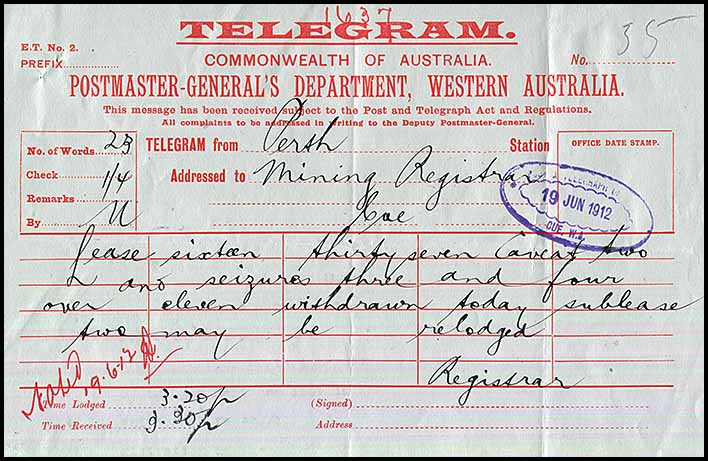 1637
TELEGRAM.
35
E.T. No. 2.
COMMONWEALTH OF AUSTRALIA.
No.
PREFIX
POSTMASTER-GENERAL'S DEPARTMENT, WESTERN AUSTRALIA.
This message has been received subject to the Post and Telegraph Act and Regulations.
All complaints to be addressed in writing to the Deputy Postmaster-General.
No. of Words 23
TELEGRAM from Perth Station
OFFICE DATE STAMP.
Check 1/4
Addressed to Mining Registrar
Remarks
Cue
By M
19 JUN 1912
CUE. W.A.
Lease sixteen thirty seven Caveat two
and seizures three and four
over eleven withdrawn today sublease
two may be relodged
Registrar
Noted 19.6.12
Time Lodged 3.20p
(Signed)
Time Received 3.30p
Address